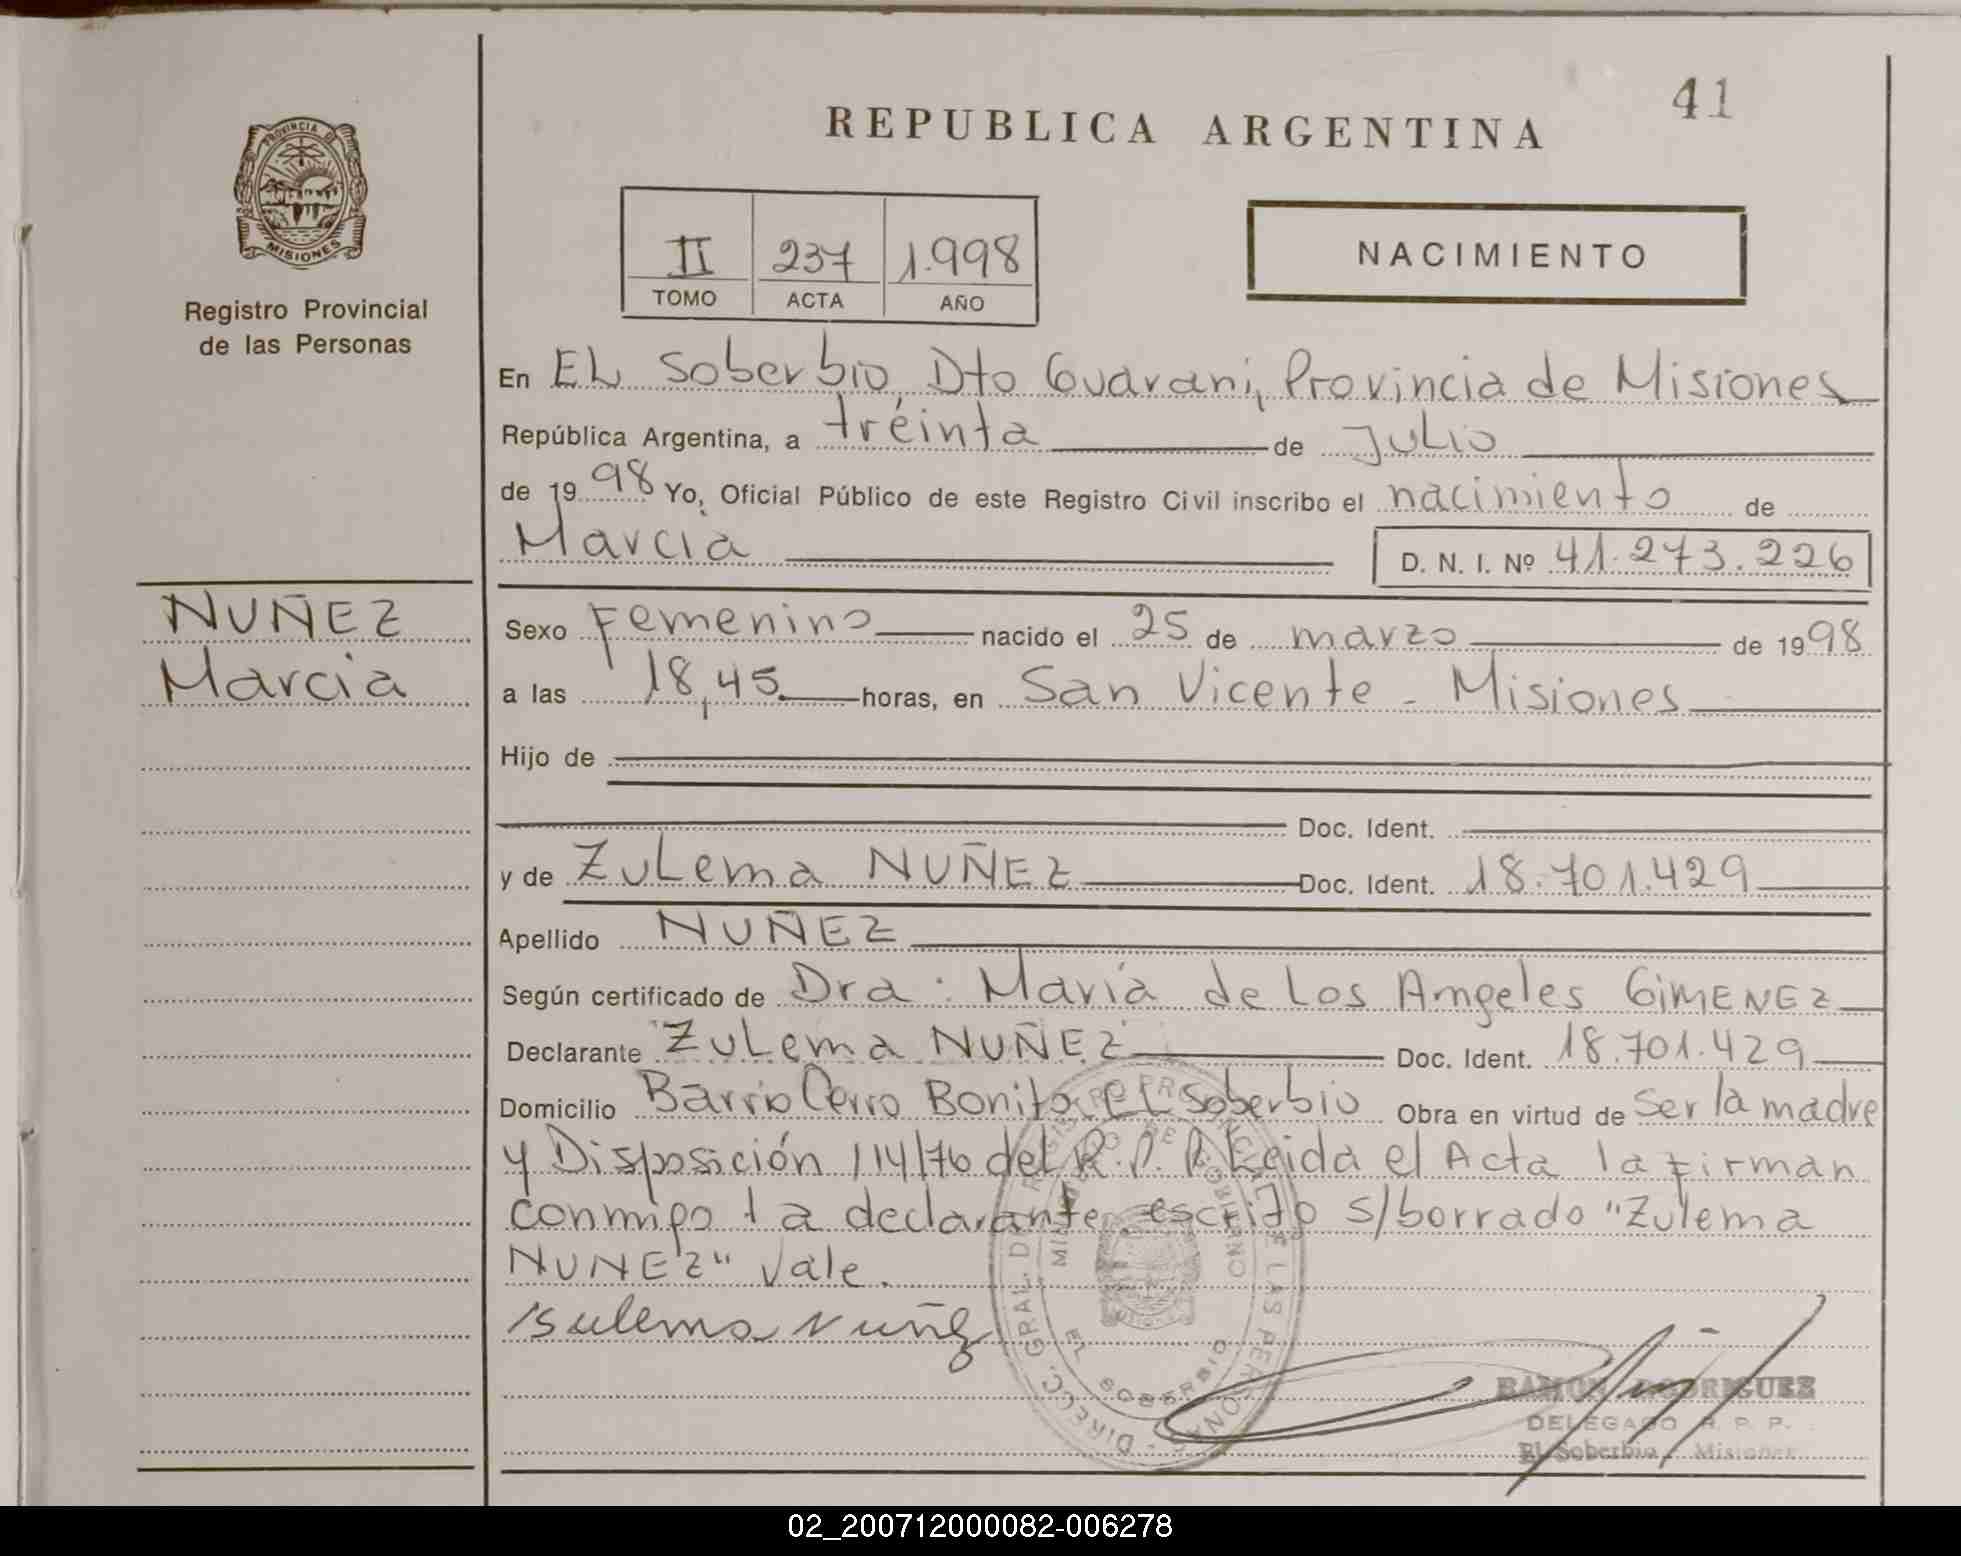 41
REPUBLICA ARGENTINA
PROVINCIA DE
MISIONES
Registro Provincial
de las Personas
II 237 1.998
TOMO ACTA AÑO
NACIMIENTO
En EL Soberbio, Dto Guarani, Provincia de Misiones
República Argentina, a treinta de Julio
de 19 98 Yo, Oficial Público de este Registro Civil inscribo el nacimiento de
Marcia D. N. I. Nº 41.273.226
NUÑEZ
Marcia
Sexo Femenino nacido el 25 de marzo de 1998
a las 18,45 horas, en San Vicente - Misiones
Hijo de
Doc. Ident.
y de Zulema NUÑEZ Doc. Ident. 18.701.429
Apellido NUÑEZ
Según certificado de Dra: Maria de Los Angeles GIMENEZ
Declarante "Zulema NUÑEZ" Doc. Ident. 18.701.429
Domicilio Barrio Cerro Bonito, EL Soberbio Obra en virtud de Ser la madre
y Disposición 114/76 del R.P.P. Leida el Acta la firman
conmigo la declarante, escrito s/borrado "Zulema
NUNEZ" Vale.
Sulema Nuñez
DIRECC. GRAL. DEL REGISTRO PROVINCIAL DE LAS PERSONAS
MINISTERIO DE GOBIERNO
EL SOBERBIO
RAMON RODRIGUEZ
DELEGADO R. P. P.
El Soberbio - Misiones
02_200712000082-006278